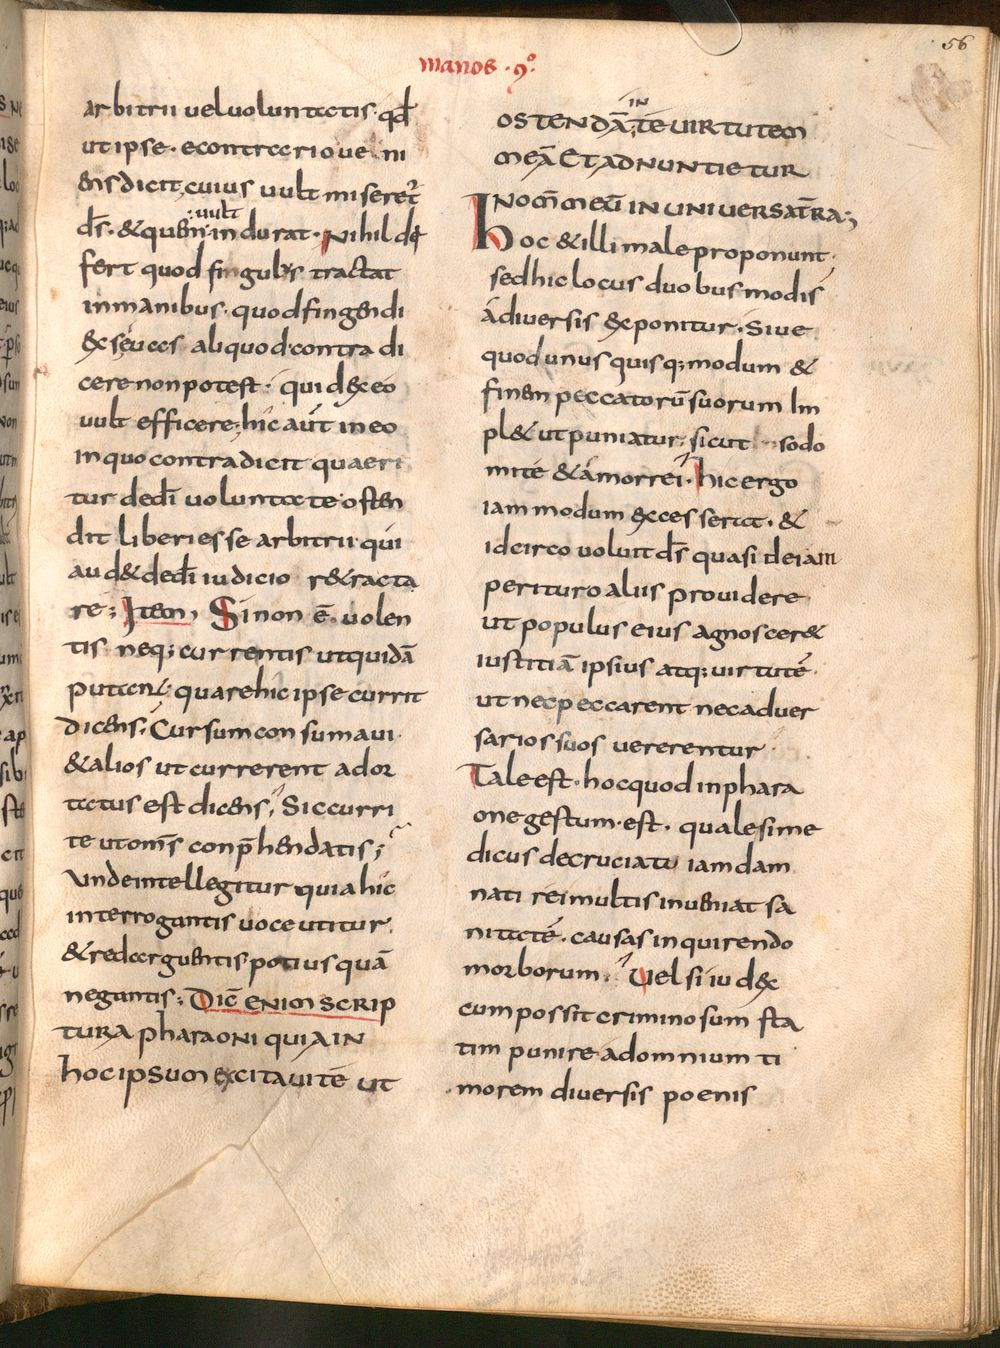 56
manos · 9º
arbitrii vel voluntatis · qđ
ut ipse · e contrario ueni
ens dicit, cuius uult miseret̉
d̅s · & quem uult indurat · Nihil de
fert quod fingulus tractat
in manibus · quod fingendi
& seuces aliquod contradi
cere non potest · qui d& ex eo
uult efficere; hic aut̅ in eo
in quo contradicit quaeri
tur de d̅i uoluntate · osten
dit liberi esse arbitrii · qui
aud& de d̅i iudicio r&racta
re; Item, Si non e̅ · uolen
tis neq; currentis ut quida̅
putant; quare hic ipse currit
dicens; Cursum consumaui ·
& alios ut currerent ador
tatus est dicens; Sic curri
te ut om̅s conp̅hendatis;
Unde intellegitur quia hic
interrogantis uoce utitur,
& redarguentis potius qua̅
negantis; Dic̅ enim scrip
tura pharaoni quia in
hoc ipsum excitaui te ut
ostenda̅ in te uirtutem
mea̅ Et adnuntietur
Nom̅ meu̅ in uniuersa t̅ra;
hoc & illi male proponunt ·
sed hic locus duobus modis
a diuersis exponitur · Siue
quod unusquisq; modum &
finem peccatoru̅ suorum Im
pl& ut puniatur; sicut sodo
mite & amorrei · hic ergo
iam modum excesserat · &
idcirco uoluit d̅s quasi de iam
perituro aliis prouidere
ut populus eius agnoscer&
iustitia̅ ipsius atq; uirtute̅
ut nec peccarent nec aduer
sarios suos uererentur ·
Tale est · hoc quod in phara
one gestum · est · quale si me
dicus de cruciatu iam dam
nati rei multis inueniat sa
nitate̅ · causas inquirendo
morborum · Vel si iudex
cum possit criminosum sta
tim punire ad omnium ti
morem diuersis poenis